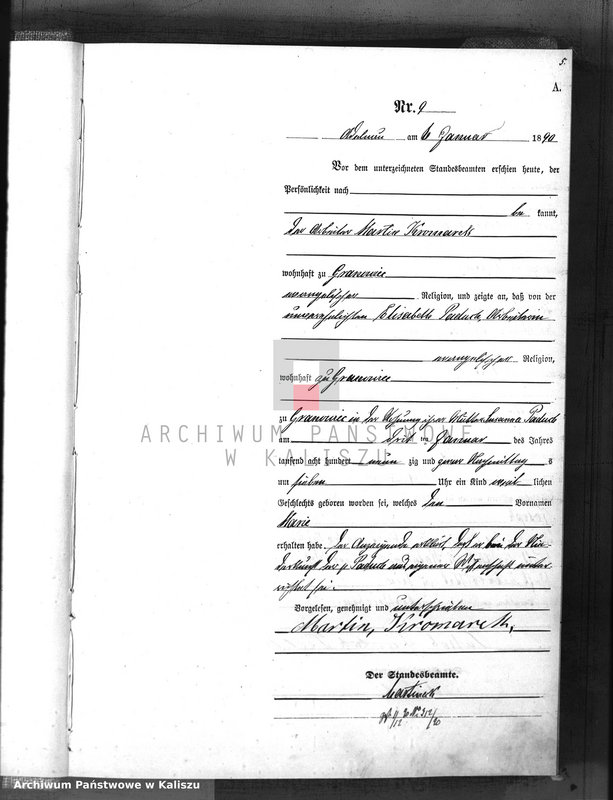 5.
A.
Nr. 9
Adelnau am 6 Januar 1890
Vor dem unterzeichneten Standesbeamten erschien heute, der
Persönlichkeit nach
be kannt,
der Arbeiter Martin Kromarek
wohnhaft zu Granowiec
evangelischer Religion, und zeigte an, daß von der
unverehelichten Elisabeth Paduch, Arbeiterin
evangelischer Religion,
wohnhaft zu Granowiec
zu Granowiec in der Wohnung ihrer Mutter Susanna Paduch
am dritten Januar des Jahres
tausend acht hundert neun zig und zwar Nachmittag s
um sieben Uhr ein Kind weib lichen
Geschlechts geboren worden sei, welches den Vornamen
Marie
erhalten habe. Der Anzeigende erklärt, daß er bei der Nie-
derkunft der p Paduch aus eigener Wissenschaft unter-
richtet sei.
Vorgelesen, genehmigt und unterschrieben
Martin, Kromarek,
Der Standesbeamte.
ARCHIWUM PAŃSTWOWE
W KALISZU
Archiwum Państwowe w Kaliszu